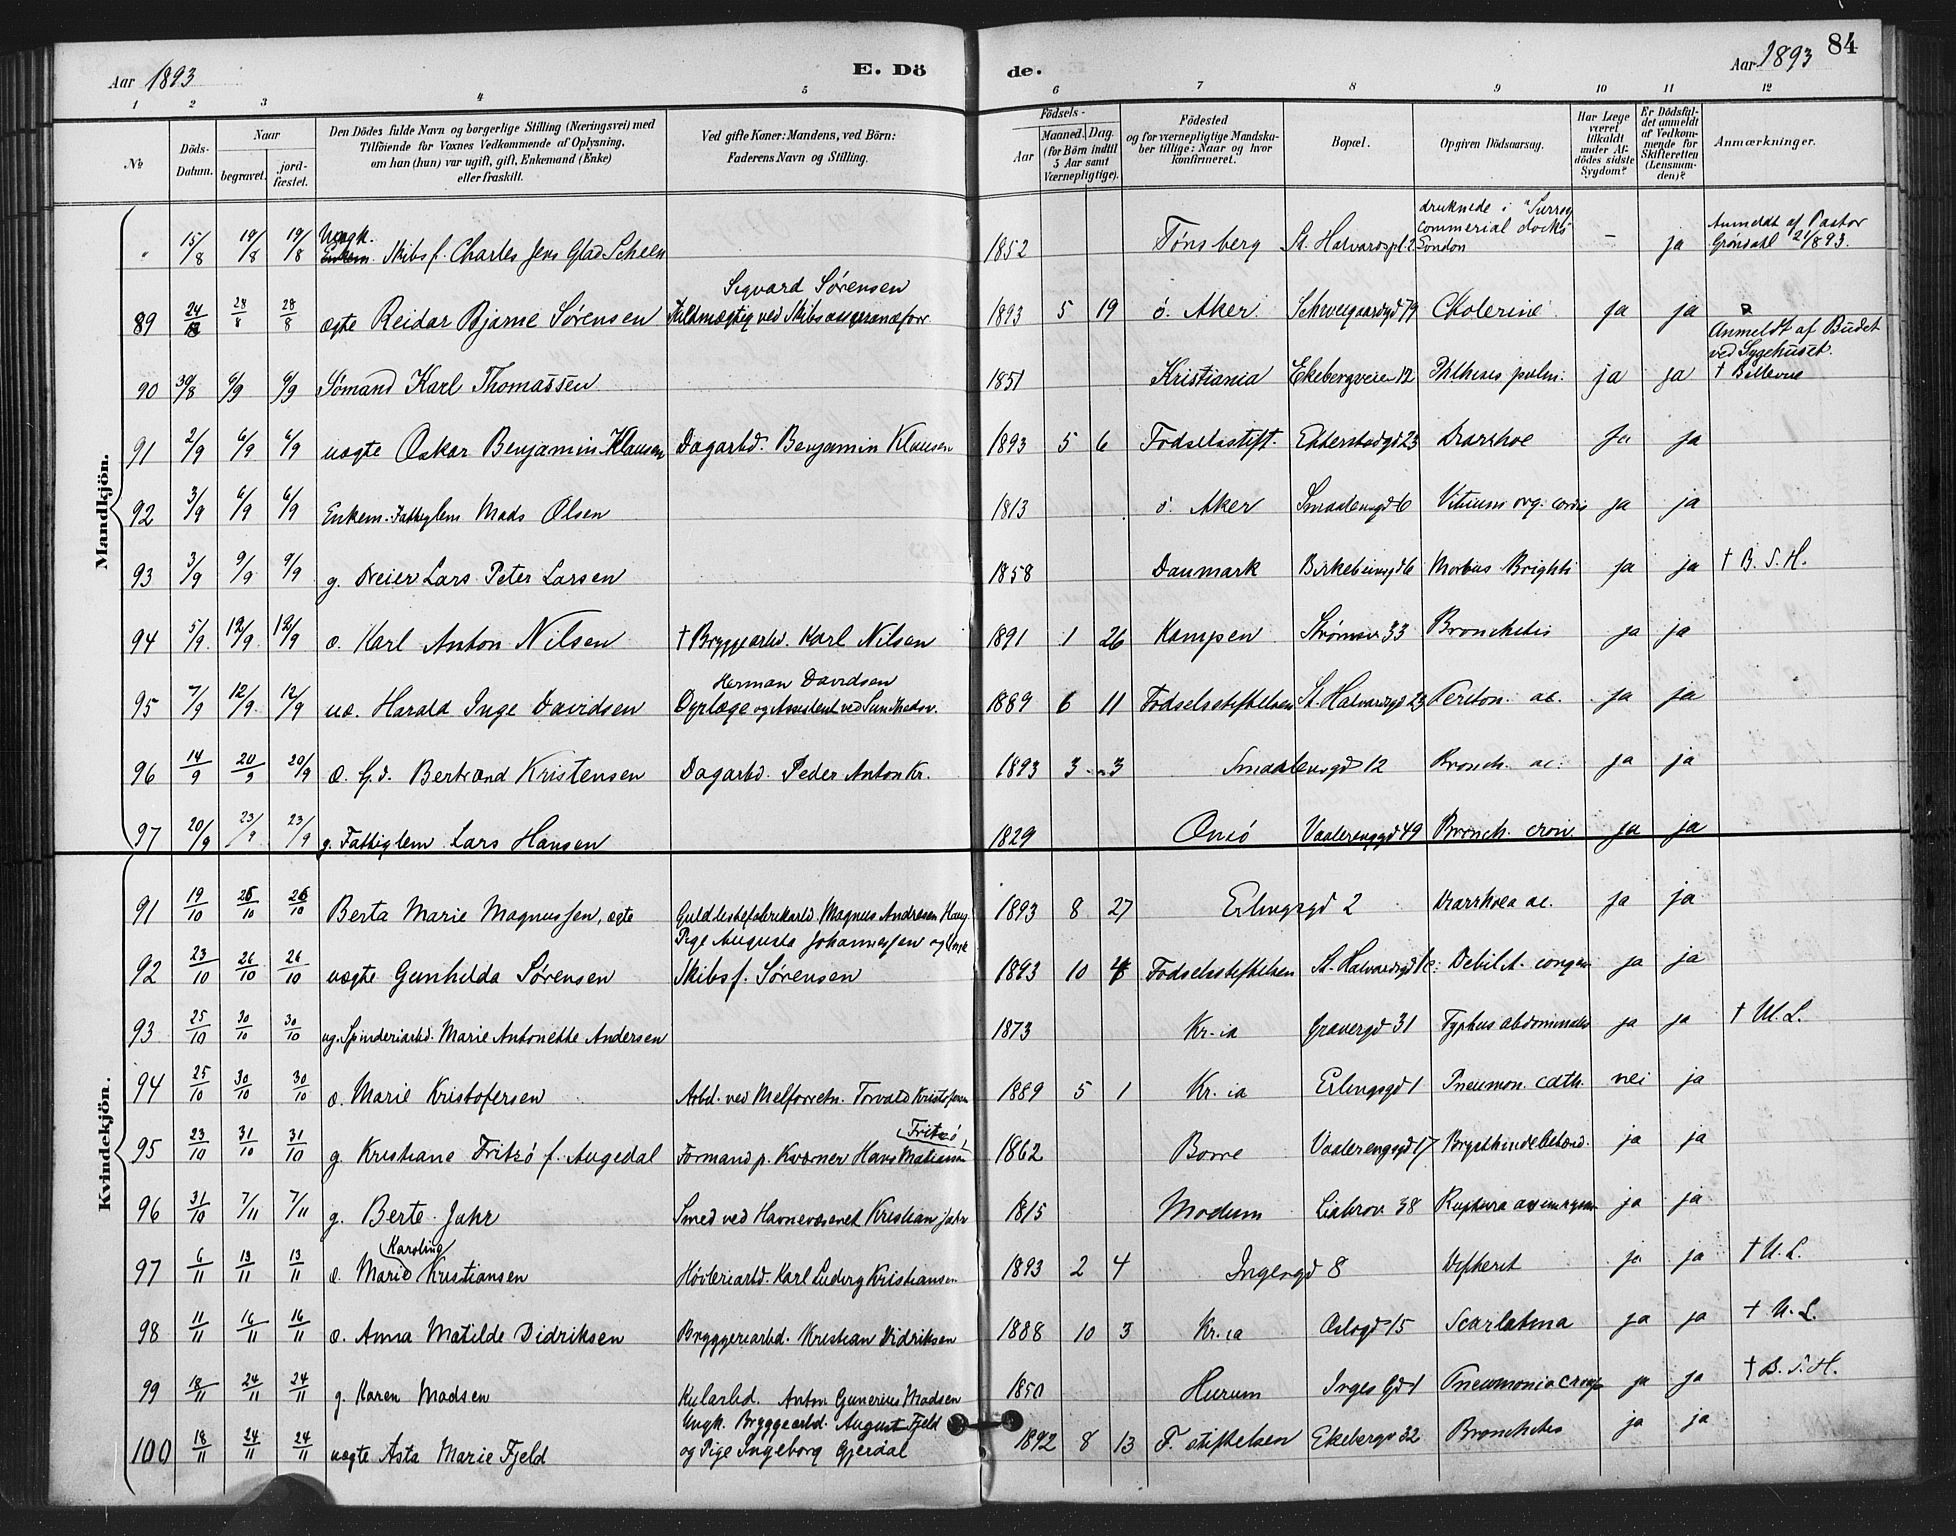 Aar 1893
E. Dö
de.
Aar 1893
84
1 2 3 4 5 6 7 8 9 10 11 12
No
Döds-Datum.
Naar
begravet.
jord-fæstet.
Den Dödes fulde Navn og borgerlige Stilling (Næringsvei) med
Tilföiende for Voxnes Vedkommende af Oplysning,
om han (hun) var ugift, gift, Enkemand (Enke)
eller fraskilt.
Ved gifte Koner: Mandens, ved Börn:
Faderens Navn og Stilling.
Födsels-
Aar
Maaned. Dag.
(for Börn indtil
5 Aar samt
Værnepligtige).
Födested
og for værnepligtige Mandska-
ber tillige: Naar og hvor
konfirmeret.
Bopæl.
Opgiven Dödsaarsag.
Har Læge
været
tilkaldt
under Af-
dödes sidste
Sygdom?
Er Dödsfal-
det anmeldt
af Vedkom-
mende for
Skifteretten
(Lensman-
den)?
Anmærkninger.
Mandkjön.
" 15/8 19/8 19/8 Ungk. Skibsf. Charles Jens Glad Scheen 1852 Tønsberg St. Halvardspl. 2 druknede i "Surrey Commercial docks" London — ja Anmeldt af Pastor Grøndahl 21/8 93.
89 24/8 28/8 28/8 ægte Reidar Bjarne Sørensen Sigvard Sørensen Fuldmægtig ved Skibsassuranceför. 1893 5 19 ö. Aker Schweigaardsgd 79 Cholerine ja ja
90 30/8 6/9 6/9 Sømand Karl Thomassen 1851 Kristiania Ekebergveien 12 Phthisis pulm. ja ja Anmeldt af Budet ved Sygehuset. † Bellevue
91 2/9 6/9 6/9 uægte Oskar Benjamin Klausen Dagarbd. Benjamin Klausen 1893 5 6 Fødselsstift. Etterstadgd 23 Diarrhoe ja ja
92 3/9 6/9 6/9 Enkem. Fattiglem Mads Olsen 1813 ö. Aker Smaalensgd 6 Vitium org. cordis ja ja
93 3/9 9/9 9/9 g. Dreier Lars Peter Larsen 1858 Danmark Birkebeinergd 6 Morbus Brighti ja ja † B. S. H.
94 5/9 12/9 12/9 æ. Karl Anton Nilsen † Bryggearbd. Karl Nilsen 1891 1 26 Kampen Strømsv 33 Bronchitis ja ja
95 7/9 12/9 12/9 uæ. Harald Inge Davidsen Herman Davidsen Dyrlæge og Assistent ved 1889 6 11 Fødselsstiftelsen St. Halvardsgd 23 Periton. ac. ja ja
96 14/9 20/9 20/9 æ. Gd. Bertrand Kristensen Dagarbd. Peder Anton Kr. 1893 3 3 Smaalensgd 12 Bronch. ac. ja ja
97 20/9 23/9 23/9 g. Fattiglem Lars Hansen 1829 Onsö Vaalerenggd 49 Bronch. cron. ja ja
Kvindekjön.
91 19/10 26/10 26/10 Berta Marie Magnussen, ægte Guldlistefabrikarbd. Magnus Andresen Haug 1893 8 27 Erlingsgd 2 Diarrhoea ac. ja ja
92 23/10 26/10 26/10 uægte Gunhilda Sørensen Pige Augusta Johannessen og Ungk Skibsf. Sørensen 1893 10 4 Fødselsstiftelsen St. Halvardsgd Debilit. congen ja ja
93 25/10 30/10 30/10 ug. Spinderiarbd. Marie Antonette Andersen 1873 Kr.ia Gravergd 31 Typhus abdominalis ja ja † U. L.
94 25/10 30/10 30/10 æ. Marie Kristofersen Arbd. ved Melforretn. Torvald Kristofersen 1889 5 1 Kr.ia Erlingsgd 1 Pneumon. cath. nei ja
95 23/10 31/10 31/10 g. Kristiane Fritzö f. Augedal Formand p. Kværner Hans Matiasen Fritzö 1862 Borre Vaalerenggd 17 Brysthindebetænd. ja ja
96 31/10 7/11 7/11 g. Berte Jahr Smed ved Havnevæsenet Kristian Jahr 1815 Modum Liabrov 38 Ruptura aneurysm ja ja
97 6/11 13/11 13/11 æ. Marie Karoline Kristiansen Høvleriarbd. Karl Ludvig Kristiansen 1893 2 4 Ingesgd 8 Difterit ja ja † U. L.
98 11/11 16/11 16/11 æ. Anna Matilde Didriksen Bryggeriarbd. Kristian Didriksen 1888 10 3 Kr.ia Oslogd 15 Scarlatina ja ja † U. L.
99 18/11 24/11 24/11 g. Karen Madsen Kularbd. Anton Gunerius Madsen 1850 Hurum Inges Gd 1 Pneumonia croup ja ja † B. S. H.
100 18/11 24/11 24/11 uægte Asta Marie Fjeld Ungk. Bryggearbd. August Fjeld og Pige Ingeborg Gjerdal 1892 8 13 F. stiftelsen Ekebergv 32 Bronchitis ja ja